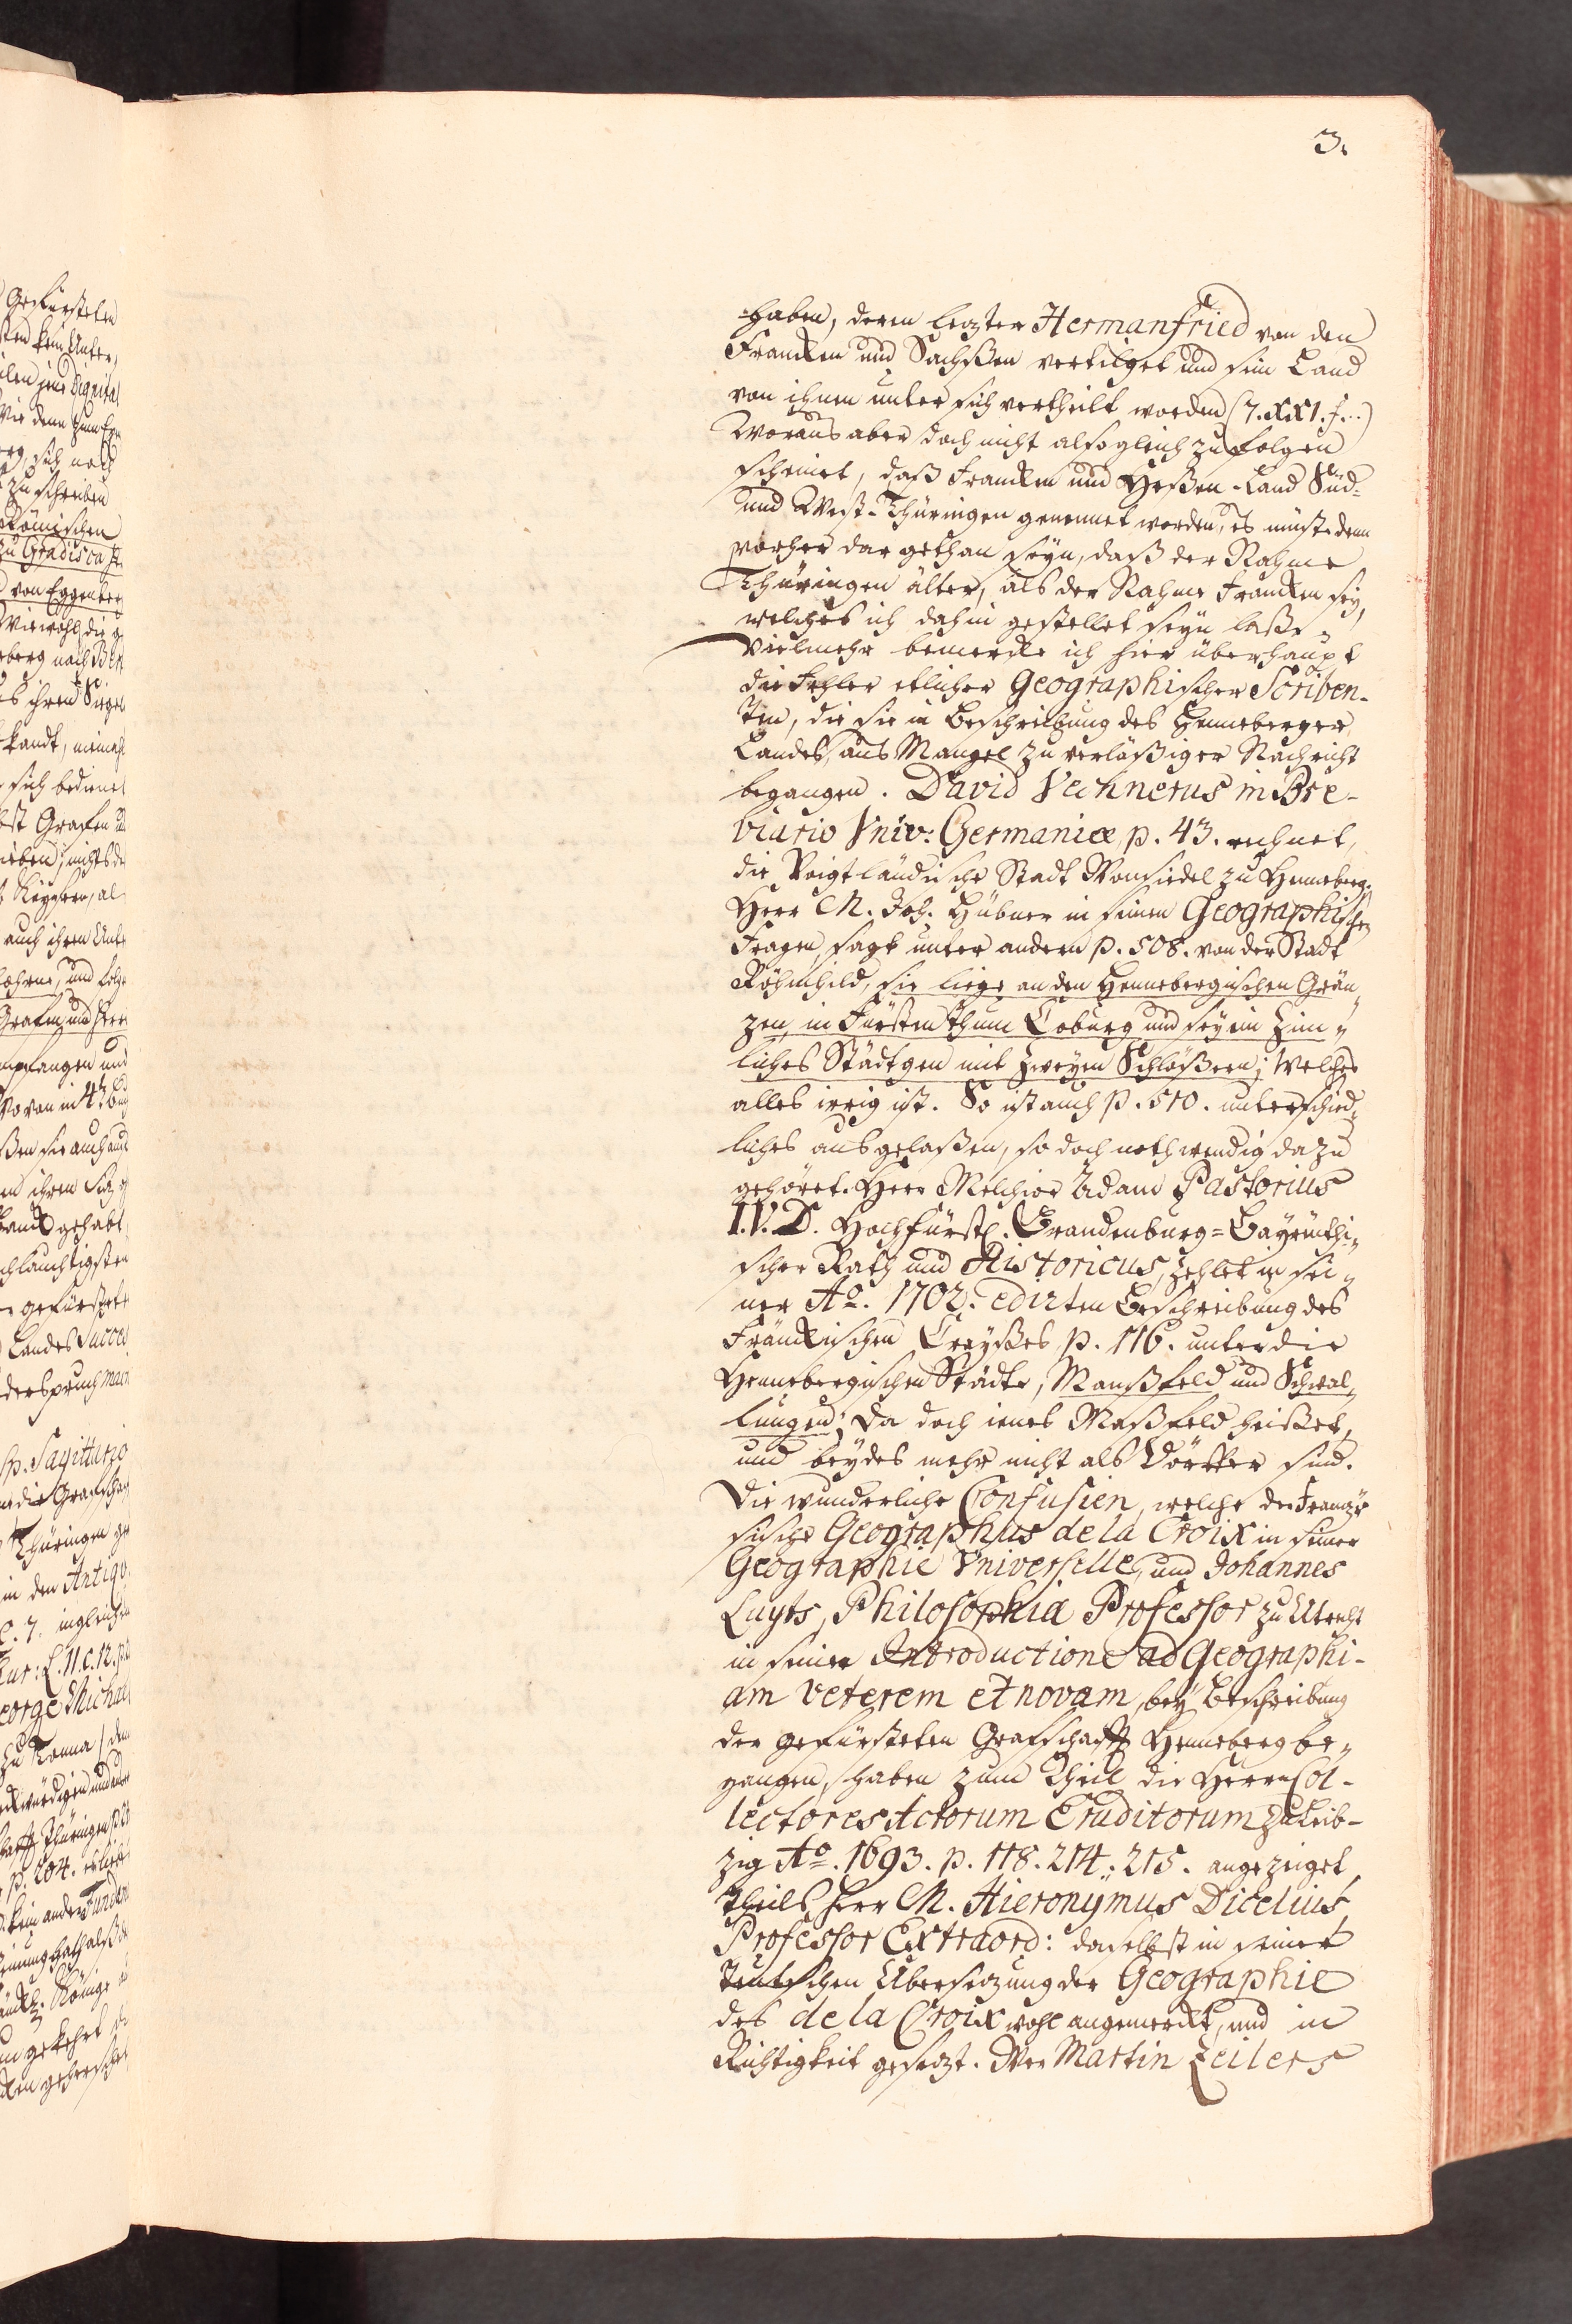 3.
haben, deren lezter Hermanfried von den
Francken und Sachßen vertilget und sein Land
von ihnen unter sich vertheilt worden (7. XXI. f...)
Woraus aber doch nicht alsogleich zu folgen
scheinet, daß Francken und Heßen-Land Süd-
und West-Thüringen genennet worden, es müste denn
vorher dargethan seyn, daß der Nahme
Thüringen älter, als der Nahme Francken sey,
welches ich dahin gestellet seyn laße.
Vielmehr bemercke ich hier überhaupt
die Fehler etlicher Geographischer Scriben-
ten, die sie in Beschreibung des Henneberger
Landes, aus Mangel zuverläßiger Nachricht
begangen. David Vechnerus in Bre-
viario Univ: Germaniæ p. 43. rechnet,
die Voigtländische Stadt Wonsiedel zu Henneberg.
Herr M. Joh. Hübner in seinen Geographischen
Fragen, sagt unter andern p. 508. von der Stadt
Röhmhild, sie liege an den Hennebergischen Grän-
zen, in Fürstenthum Coburg und sey ein Zim-
liches Städtgen mit zweyen Schlößern; Welches
alles irrig ist. So ist auch p. 510. unterschied-
liches ausgelaßen, so doch nothwendig dazu
gehöret. Herr Melchior Adam Pastorius
I.V.D. Hochfürstl. Brandenburg-Bayreuthi-
scher Rath und Historicus, zehlet in sei-
ner Ao. 1702. edirten Beschreibung des
Fränckischen Creyßes p. 116. unter die
Hennebergischen Städte, Manßfeld und Schwal-
lungen; Da doch ienes Maßfeld heißet,
und beydes mehr nicht als Dörffer sind.
Die wunderliche Confusien, welche der Franzö-
sische Geographus de la Croix in seiner
Geographie Universelle, und Johannes
Luyts, Philosophia Professor zu Utrecht
in seiner Introductione ad Geographi-
am veterem et novam, bey Beschreibung
der gefürsteten Grafschafft Henneberg be-
gangen, haben zum Theil die Herrn Col-
lectores Actorum Eruditorum zu Leib-
zig Ao. 1693. p. 118. 214. 215. angezeiget,
theils Herr M. Hieronymus Dicelius,
Professor Extraord: daselbst in seiner
Teutschen Übersezung der Geographie
des de la Croix wohl angemerckt, und in
Richtigkeit gesezt. Wer Martin Zeilers